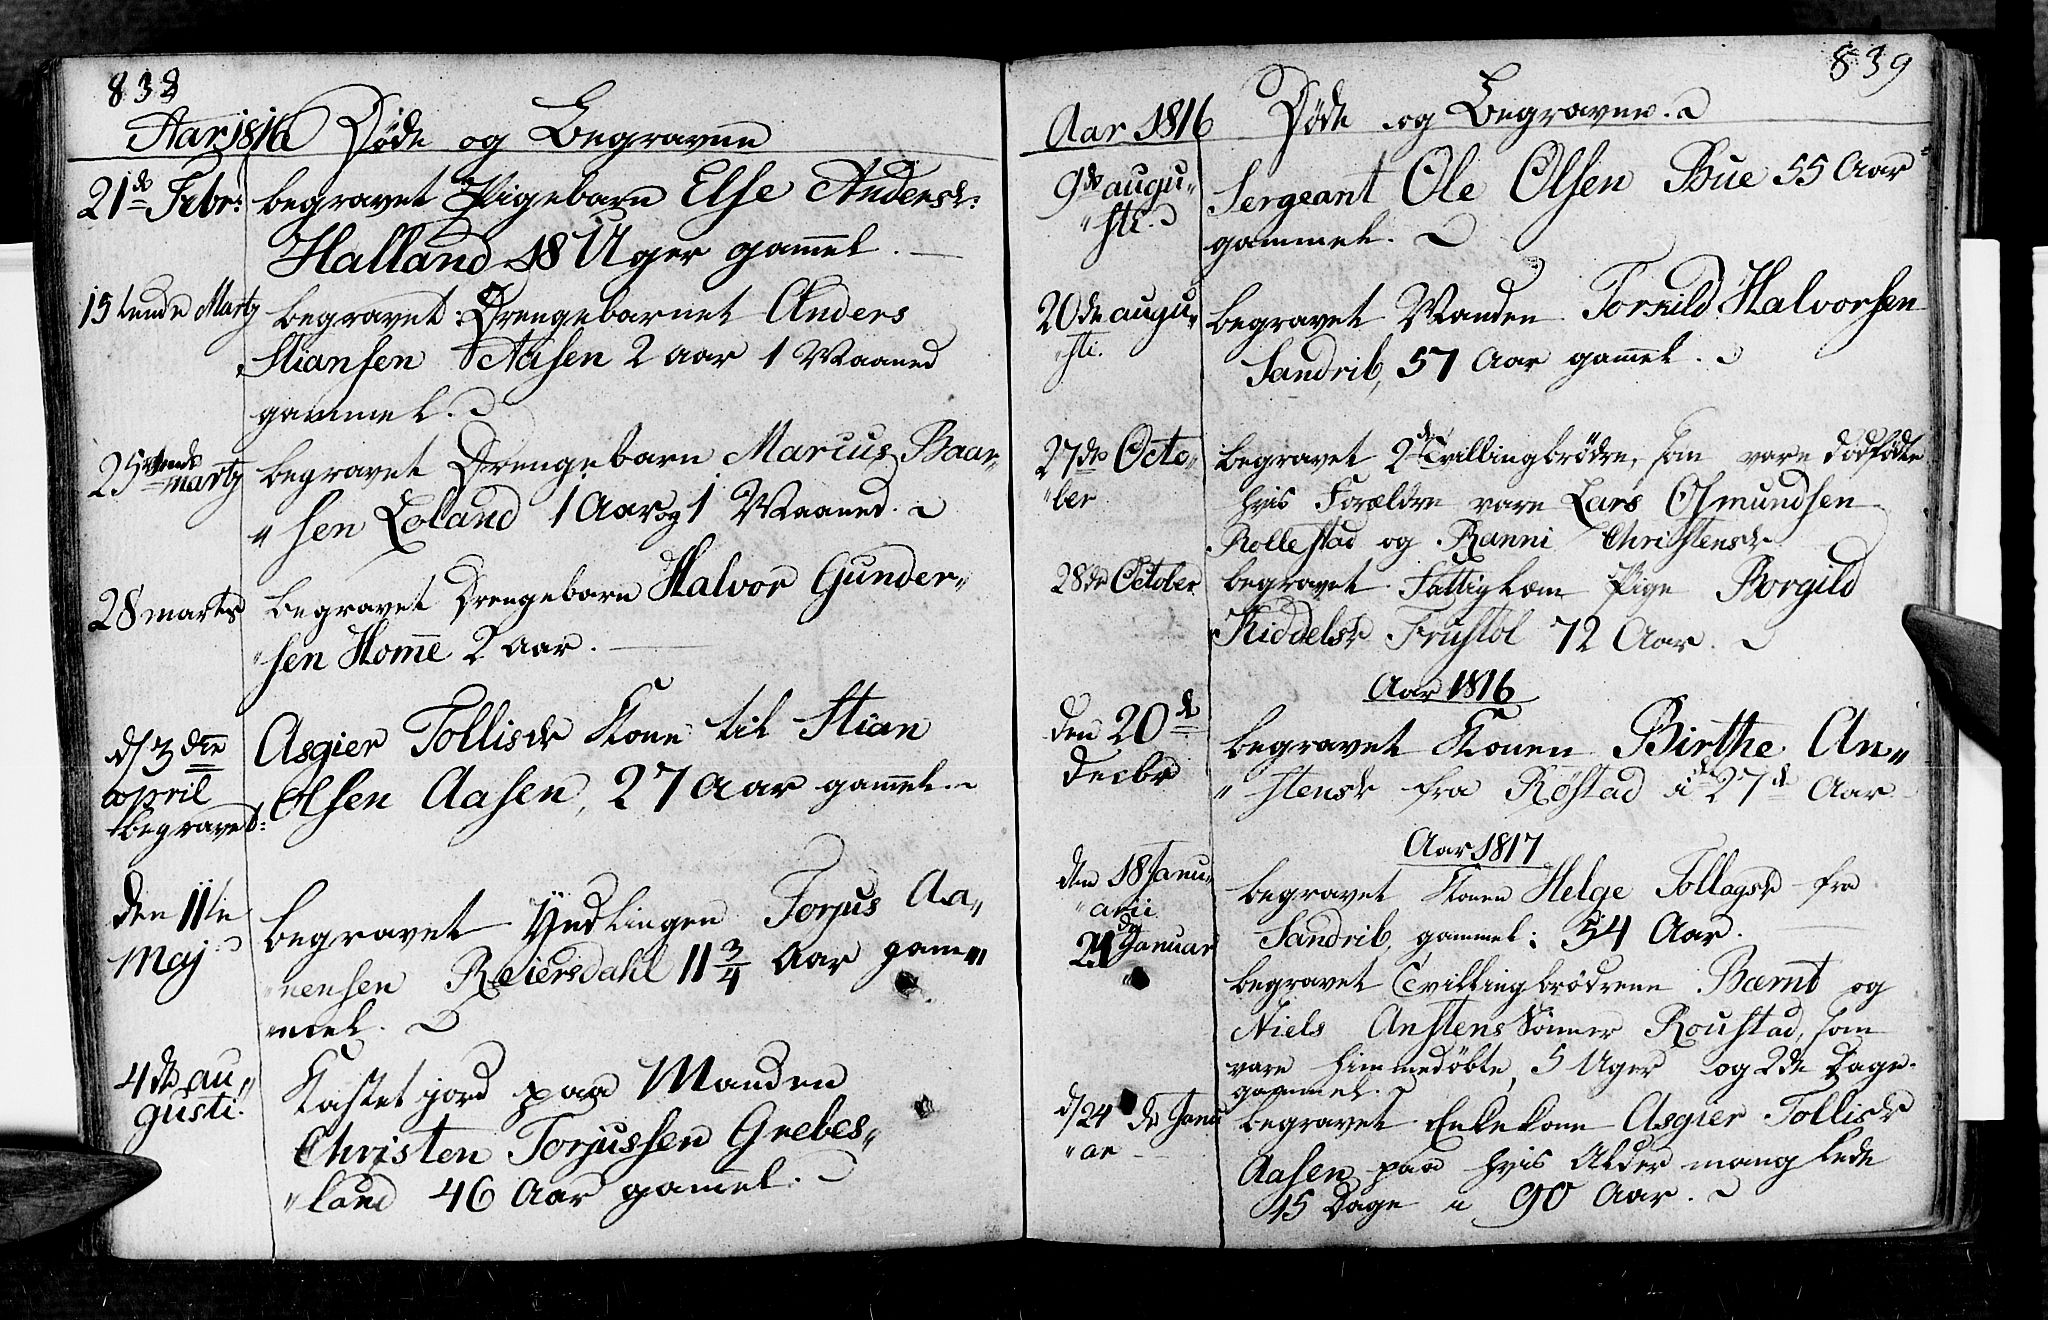 838
Aar 1816 Døde og Begravne
21de Febr: begravet Pigebarn Else Andersdr:
Halland 18 Uger gam̄el.
15tende Martz begravet Drengebarnet Anders
Stiansen Aasen 2 aar 1 Maaned
gammel.
25tende martz begravet Drengebarn Marcus Baar„
„sen Loland 1 Aar og 1 Maaned.
28 marts begravet Drengebarn Halvor Gunder„
„sen Hom̄e 2 aar.
d/ 3die Asgier Tollisdr Kone til Stian
april Olsen Aasen, 27 Aar gam̄el.
begravet:
den 11te begravet Yndlingen Torjus Aa„
Maj „nensen Reiersdahl 11 3/4 Aar gam„
„mel.
4de au„ Kastet jord paa Manden
gusti. Christen Torjussen Grebes„
„land 46 Aar gam̄el.
839
Aar 1816 Døde og Begravne.
9de augu„ Sergeant Ole Olsen Bue 55 Aar
„sti. gammel.
20de augu„ begravet Manden Torkild Halvorsen
„sti. Sandrib, 57 Aar gam̄el.
27de Octo„ begravet 2de Tvillingbrödre, som vare dödfödte
„ber hvis Forældre vare Lars Osmundsen
Rollestad og Ranni Christensdr
28de October begravet Fattiglem Pige Borgild
Kiddelsdr Frustöl 72 Aar.
Aar 1816
den 20de begravet Konen Birthe An„
Decbr „stensdr fra Röstad i 27de Aar
Aar 1817
den 18 Janu„ begravet Konen Helge Tollagsdr fra
„arii Sandrib, gammel: 54 Aar.
21de Januar begravet Tvillingbrödrene Bernt og
Niels Anstens Sönner Roustad, som
vare hjemmedöbte, 5 Uger og 2de Dage
gammel.
d/ 24de Janu begravet Enkekone Asgier Tollisdr
„ar Aasen paa hvis Alder manglede
15 Dage i 90 Aar.